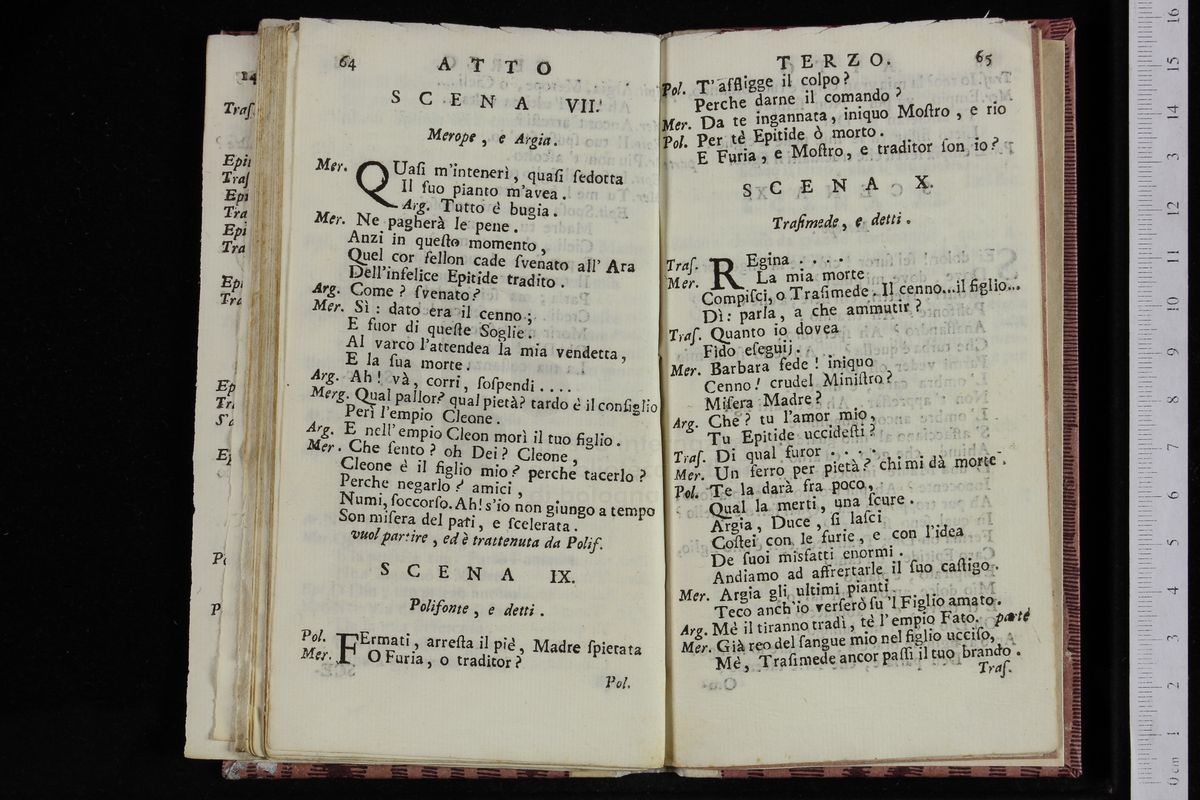 14
Traſ.
Epi
Traſ
Epi
Tra
Epi
Tra
Epi
Tra
Ep
Tr
S'a
Ep
P
64
ATTO
SCENA VII.
Merope, e Argia.
Mer. QUaſi m'intenerì, quaſi ſedotta
Il ſuo pianto m'avea.
Arg. Tutto è bugia.
Mer. Ne pagherà le pene.
Anzi in queſto momento,
Quel cor fellon cade ſvenato all' Ara
Dell'infelice Epitide tradito.
Arg. Come? ſvenato?
Mer. Sì: dato era il cenno;
E fuor di queſte Soglie.
Al varco l'attendea la mia vendetta,
E la ſua morte.
Arg. Ah! và, corri, ſoſpendi....
Merg. Qual pallor? qual pietà? tardo è il conſiglio
Perì l'empio Cleone.
Arg. E nell'empio Cleon morì il tuo figlio.
Mer. Che ſento? oh Dei? Cleone,
Cleone è il figlio mio? perche tacerlo?
Perche negarlo? amici,
Numi, ſoccorſo. Ah! s'io non giungo a tempo
Son miſera del pati, e ſcelerata.
vuol partire, ed è trattenuta da Polif.
SCENA IX.
Polifonte, e detti.
Pol. FErmati, arreſta il piè, Madre ſpietata
Mer. O Furia, o traditor?
Pol.
TERZO. 65
Pol. T'affligge il colpo?
Perche darne il comando?
Mer. Da te ingannata, iniquo Moſtro, e rio
Pol. Per tè Epitide ò morto.
E Furia, e Moſtro, e traditor ſon io?
SCENA X.
Traſimede, e detti.
Traſ. REgina....
Mer. La mia morte
Compiſci, o Traſimede. Il cenno...il figlio...
Dì: parla, a che ammutir?
Traſ. Quanto io dovea
Fido eſeguij.
Mer. Barbara fede! iniquo
Cenno! crudel Miniſtro?
Miſera Madre?
Arg. Che? tu l'amor mio,
Tu Epitide uccideſti?
Traſ. Di qual furor.....
Mer. Un ferro per pietà? chi mi dà morte.
Pol. Te la darà fra poco,
Qual la merti, una ſcure.
Argia, Duce, ſi laſci
Coſtei con le furie, e con l'idea
De ſuoi misfatti enormi.
Andiamo ad affrertarle il ſuo caſtigo.
Mer. Argia gli ultimi pianti
Teco anch'io verſerò ſu'l Figlio amato.
Arg. Mè il tiranno tradì, tè l'empio Fato. parte
Mer. Già reo del ſangue mio nel figlio ucciſo,
Mè, Traſimede ancor paſſi il tuo brando.
Traſ.